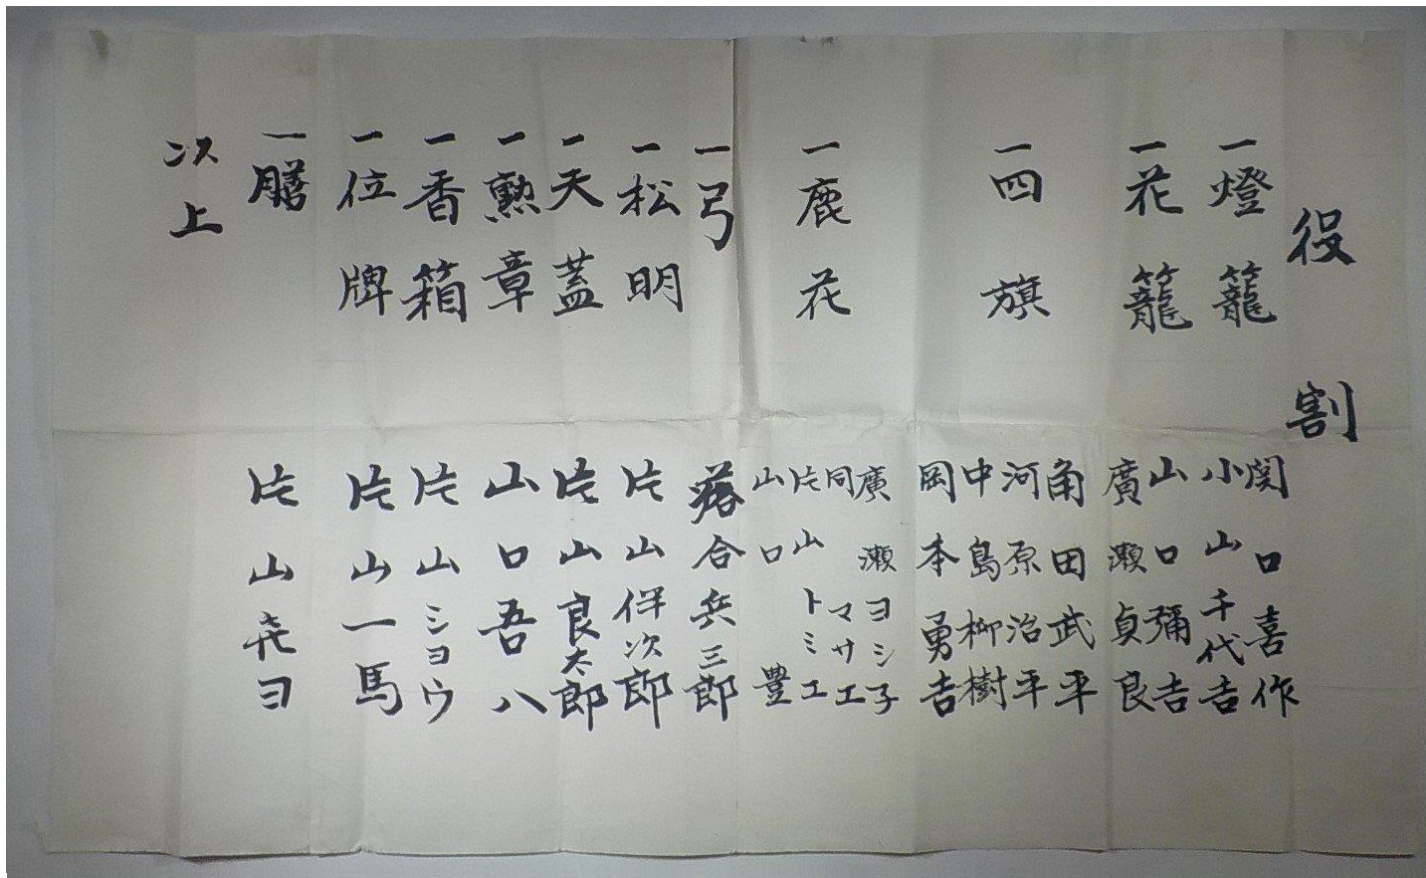 役割
一燈籠
関口喜作
小山千代吉
一花籠
山口彌吉
廣瀬貞良
一四旗
角田武平
河原治平
中島柳樹
岡本勇吉
一鹿花
廣瀬ヨシ子
同マサエ
片山トミエ
山口豊
一弓
落合兵三郎
一松明
片山伴次郎
一天蓋
片山良太郎
一勲章
山口吾八
一香箱
片山シヨウ
一位牌
片山一馬
一膳
片山㐂ヨ
以上